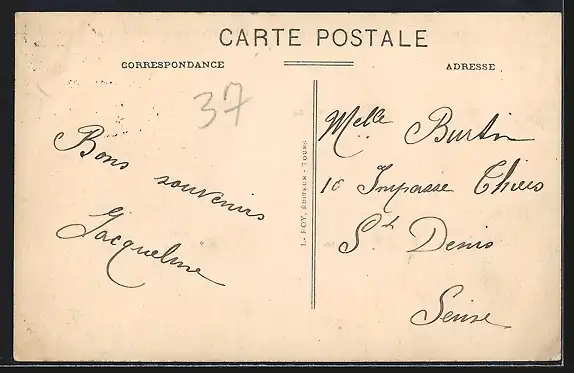 CARTE POSTALE
CORRESPONDANCE
ADRESSE
37
Bons
souvenirs
Jacqueline
L. ROY, ÉDITEUR - TOURS
Melle Burtin
10 Impasse Thiers
St Denis
Seine